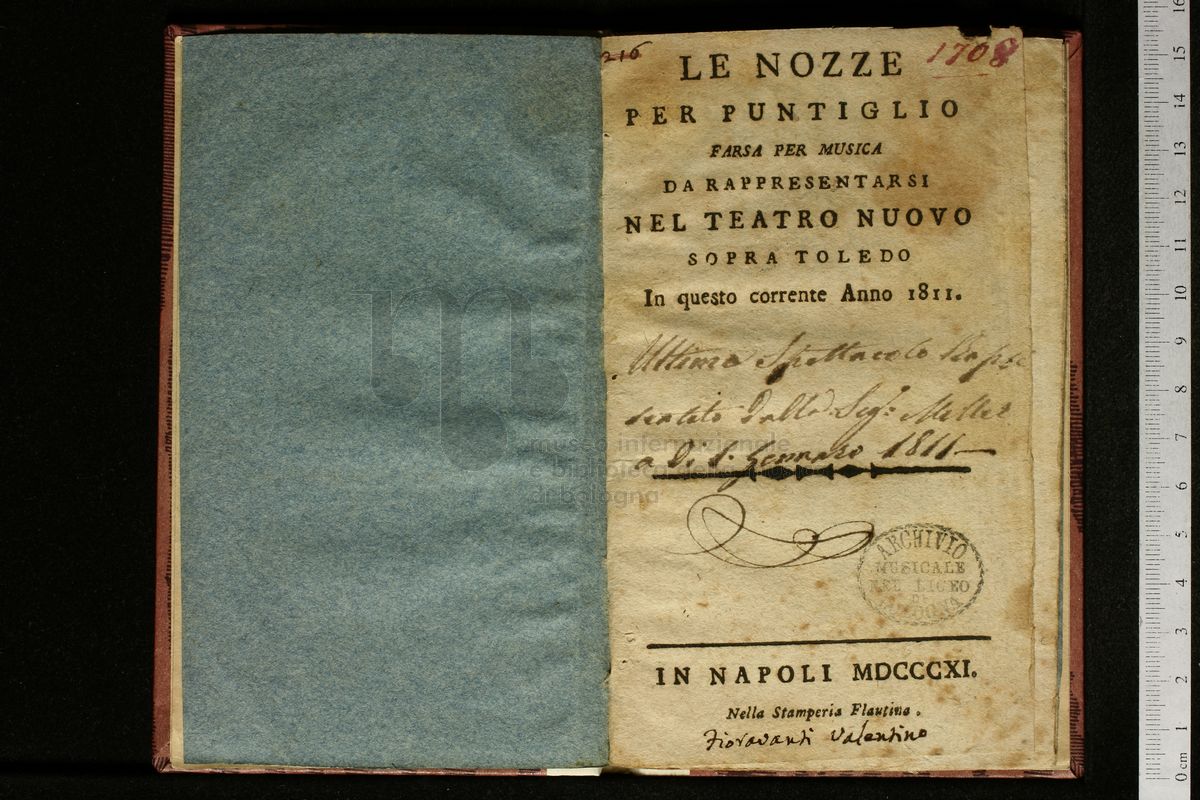 216
1708
LE NOZZE
PER PUNTIGLIO
FARSA PER MUSICA
DA RAPPRESENTARSI
NEL TEATRO NUOVO
SOPRA TOLEDO
In questo corrente Anno 1811.
Ultimo Spettacolo
Dalle Sig.
a Di 1. Gennaro 1811
museo internazionale
e biblioteca della musica
di bologna
ARCHIVIO
MUSICALE
NEL LICEO
DI
BOLOGNA
IN NAPOLI MDCCCXI.
Nella Stamperia Flautina.
Fioravanti Valentino
0 cm 1 2 3 4 5 6 7 8 9 10 11 12 13 14 15 16